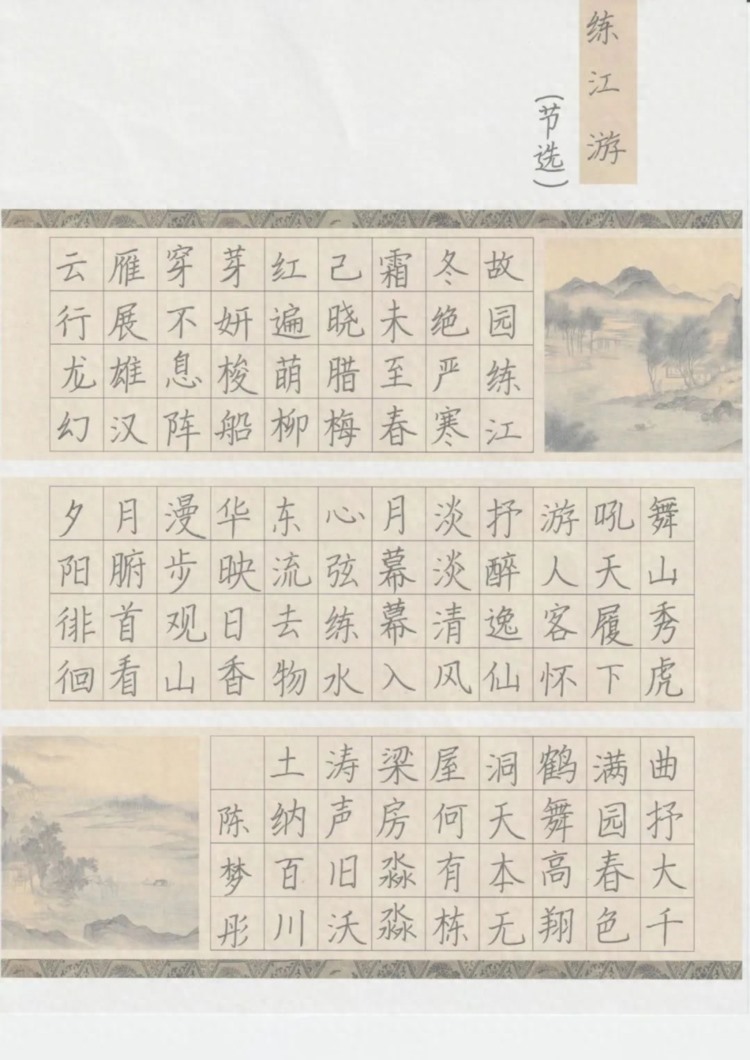 练江游
（节选）
故园练江
冬绝严寒
霜未至春
己晓腊梅
红遍萌柳
芽妍梭船
穿不息阵
雁展雄汉
云行龙幻
舞山秀虎
吼天履下
游人客怀
抒醉逸仙
淡淡清风
月幕幕入
心弦练水
东流去物
华映日香
漫步观山
月腑首看
夕阳徘徊
曲抒大千
满园春色
鹤舞高翔
洞天本无
屋何有栋
梁房淼淼
涛声旧沃
土纳百川
陈梦彤